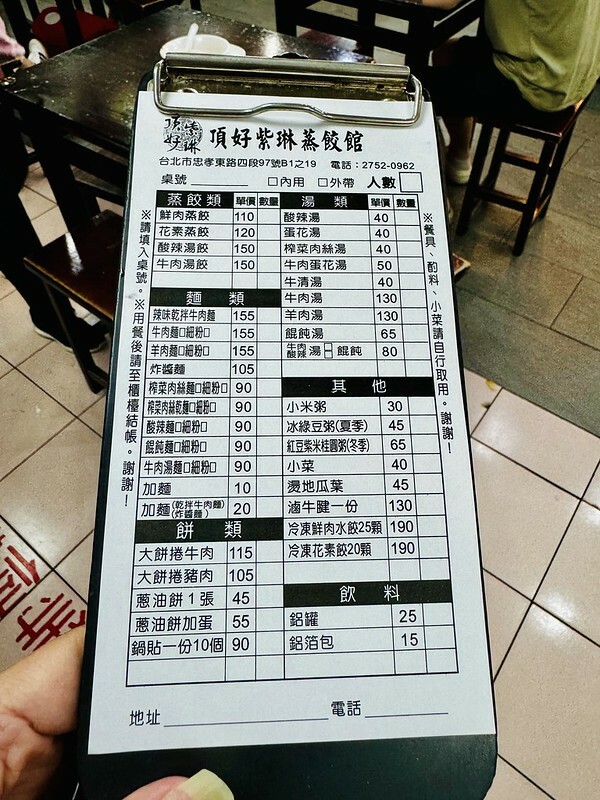 頂好紫琳
頂好紫琳蒸餃館
台北市忠孝東路四段97號B1之19 電話：2752-0962
桌號 □內用 □外帶 人數□
※請填入桌號。※用餐後請至櫃檯結帳。謝謝！
蒸餃類 單價 數量
鮮肉蒸餃 110
花素蒸餃 120
酸辣湯餃 150
牛肉湯餃 150
麵類
辣味乾拌牛肉麵 155
牛肉麵□細粉□ 155
羊肉麵□細粉□ 155
炸醬麵 105
榨菜肉絲麵□細粉□ 90
榨菜肉絲乾麵□細粉□ 90
酸辣麵□細粉□ 90
餛飩麵□細粉□ 90
牛肉湯麵□細粉□ 90
加麵 10
加麵(乾拌牛肉麵)(炸醬麵) 20
餅類
大餅捲牛肉 115
大餅捲豬肉 105
蔥油餅1張 45
蔥油餅加蛋 55
鍋貼一份10個 90
湯類 單價 數量
酸辣湯 40
蛋花湯 40
榨菜肉絲湯 40
牛肉蛋花湯 50
牛清湯 40
牛肉湯 130
羊肉湯 130
餛飩湯 65
牛肉□酸辣□湯餛飩 80
其他
小米粥 30
冰綠豆粥(夏季) 45
紅豆紫米桂圓粥(冬季) 65
小菜 40
燙地瓜葉 45
滷牛腱一份 130
冷凍鮮肉水餃25顆 190
冷凍花素餃20顆 190
飲料
鋁罐 25
鋁箔包 15
※餐具、酌料、小菜請自行取用。謝謝！
地址 電話